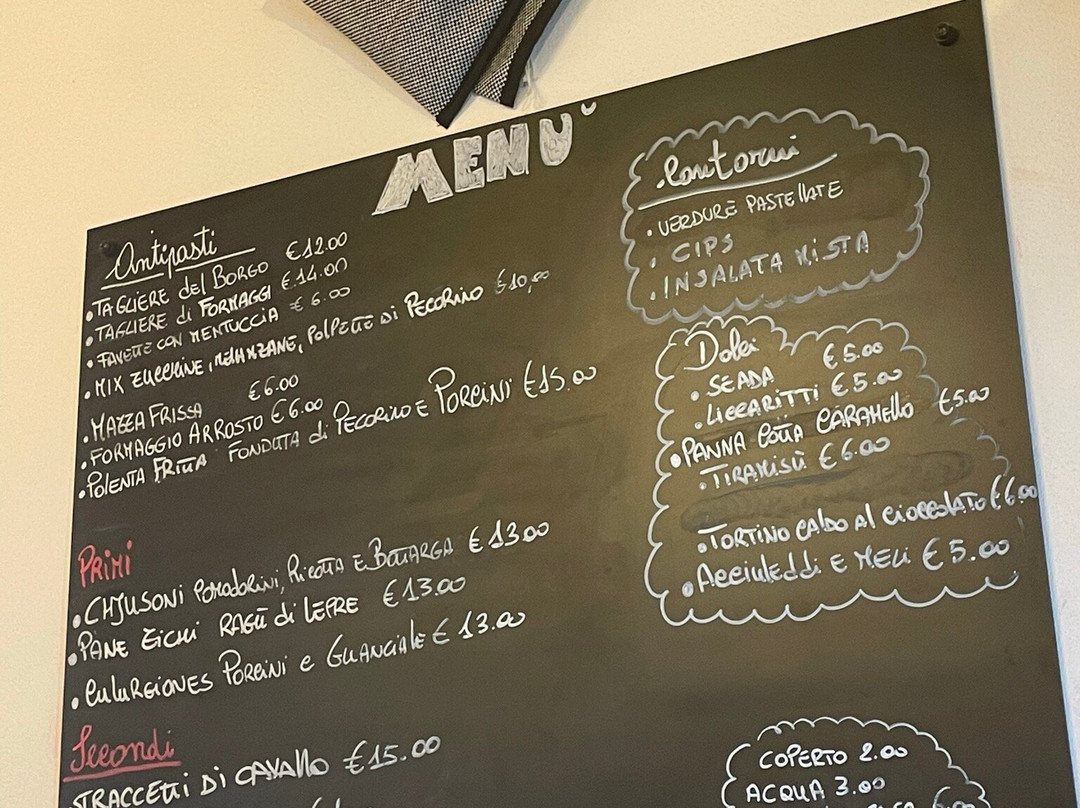 MENU`
Antipasti
• TAGLIERE del BORGO €12.00
• TAGLIERE di FORMAGGI €.14.00
• FAVETTE CON MENTUCCIA € 6.00
• MIX ZUCCHINE, MELANZANE, POLPETTE DI PECORINO €10,00
• MAZZA FRISSA €6.00
• FORMAGGIO ARROSTO €6.00
• POLENTA FRITTA FONDUTA di PECORINO E PORCINI €15.00
PRIMI
• CHJUSONI POMODORINI, RICOTTA E BOTTARGA €13.00
• PANE ZICHI RAGÙ di LEPRE €13.00
• CULURGIONES PORCINI e GUANCIALE €13.00
Secondi
STRACCETTI DI CAVALLO €15.00
Contorni
• VERDURE PASTELLATE
• CIPS
• INSALATA MISTA
Dolci
• SEADA €5.00
• LICCARITTI €5.00
• PANNA COTTA CARAMELLO €5.00
• TIRAMISÙ €6.00
• TORTINO CALDO AL CIOCCOLATO €6.00
• ACCIULEDDI E MELI €5.00
COPERTO 2.00
ACQUA 3.00